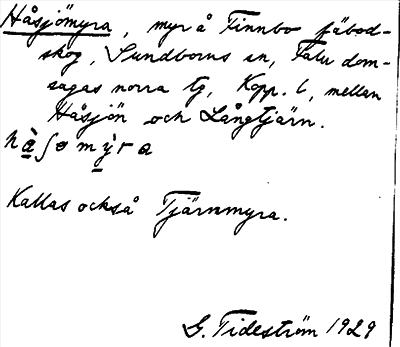 Håsjömyra, myr å Finnbo fäbod-
skog, Sundborns sn, Falu dom-
sagas norra tg, Kopp. l, mellan
Håsjön och Långtjärn.
hå̀ʃɵmỳra
Kallas också Tjärnmyra.
G. Tideström 1929